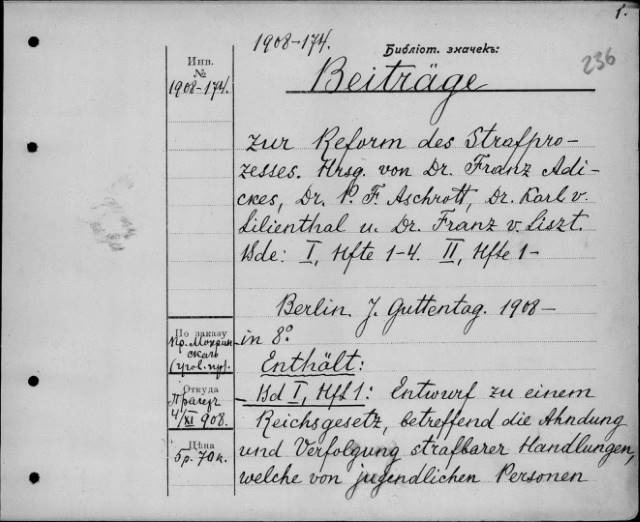 1.
1908-174.
Библіот. значекъ:
236
Инв.
№
1908-174.
Beiträge
zur Reform des Strafpro-
zesses. Hrsg. von Dr. Franz Adi-
ckes, Dr. P. F. Aschrott, Dr. Karl v.
Lilienthal u. Dr. Franz v. Liszt.
Bde: I, Hfte 1-4. II, Hfte 1-
Berlin J. Guttentag. 1908-
in 8º
Enthält:
Bd I, Hft 1: Entwurf zu einem
Reichsgesetz, betreffend die Ahndung
und Verfolgung strafbarer Handlungen,
welche von jugendlichen Personen
По заказу
Пр.
Откуда
4/XI 908.
Цѣна
5р. 70к.